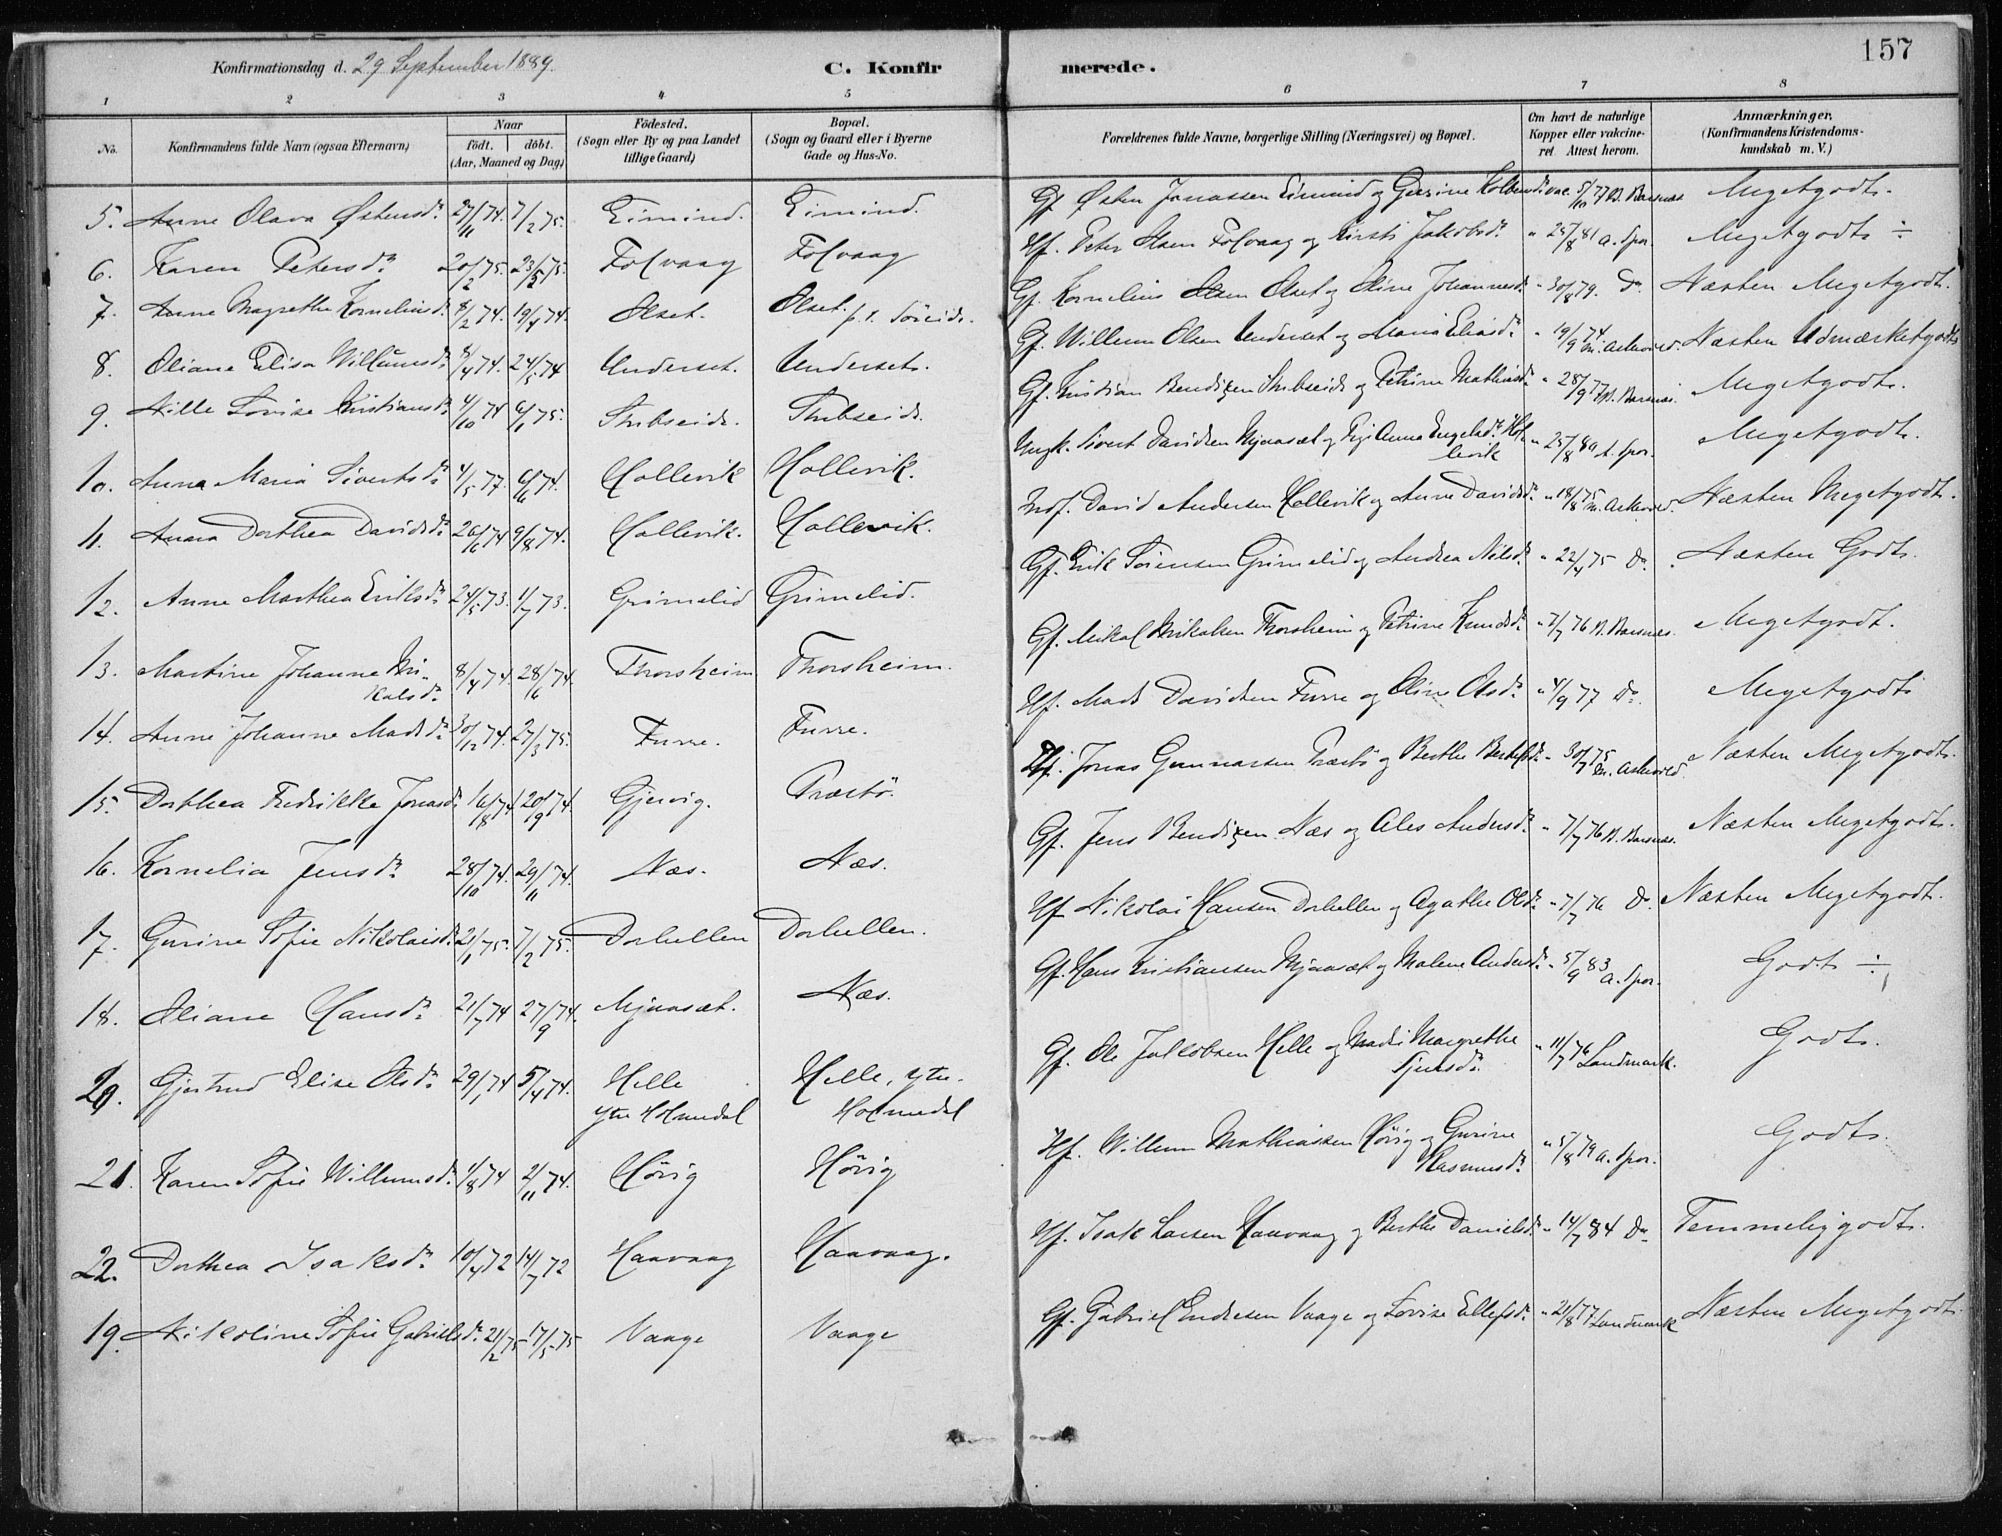 157
Konfirmationsdag d. 29 September 1889.
C. Konfirmerede.
1 2 3 4 5 6 7 8
No.
Konfirmandens fulde Navn (ogsaa Efternavn)
Naar
født. døbt.
(Aar, Maaned og Dag)
Fødested.
(Sogn eller By og paa Landet tillige Gaard)
Bopæl.
(Sogn og Gaard eller i Byerne Gade og Hus-No.
Forældrenes fulde Navne, borgerlige Stilling (Næringsvei) og Bopæl.
Om havt de naturlige Kopper eller vakcineret. Attest herom.
Anmærkninger.
(Konfirmandens Kristendomskundskab m. V.)
5. Anne Olava Østensdr. 27/11 74. 7/2 75. Eimind. Eimind. Gf. Østen Jonassen Eimind og Gurine Kolbensdr. vac. 5/10 77 B. Barsnæs Megetgodt.
6. Karen Petersdr. 20/2 75. 23/5 75. Folvaag Folvaag Hf. Peter Olsen Folvaag og Kirsti Jakobsdr. " 25/8 81 A. Spor. Megetgodt ÷
7. Anne Magrethe Korneliusdr. 8/2 74. 19/4 74. Olset. Olset. p.t. Søreide. Gf. Kornelius Olsen Olset og Oline Johannesdr. " 30/8 79. Do. Næsten Megetgodt.
8. Oliane Elisa Willumsdr. 8/4 74. 24/5 74 Underset. Underset. Gf. Willum Olsen Underset og Maria Eliasdr. " 19/9 74 M. Askevold. Næsten Udmærketgodt
9. Nille Lovise Kristiansdr. 4/10 74 6/1 75. Stubseide. Stubseide. Gf. Kristian Bendixen Stubseide og Petrine Mathiasdr. " 28/9 77 B. Barsnæs. Megetgodt.
10. Anna Maria Sivertsdr. 4/5 77. 6/6 74. Hollevik Hollevik. Ungk. Sivert Davidsen Mjaasæt og Pige Anna Engelsdr. Hollevik " 25/8 80 A. Spor. Megetgodt.
11. Anna Dorthea Davidsdr. 26/6 74 9/8 74. Hollevik. Hollevik. Inds. David Andersen Hollevik og Anne Davidsdr. " 18/8 75 M. Askevold. Næsten Megetgodt.
12. Anne Marthea Eriksdr. 24/5 73. 1/7 73. Grimelid Grimelid. Gf. Erik Sørensen Grimelid og Andrea Nilsdr. " 22/4 75 Do. Næsten Godt.
13. Martine Johanne Mikalsdr. 8/4 74. 28/6 74. Thorsheim Thorsheim. Gf. Mikal Mikalsen Thorsheim og Petrine Knudsdr. " 7/7 76 B. Barsnæs. Megetgodt.
14. Anne Johanne Madsdr. 30/12 74. 27/3 75. Furre. Furre. Hf. Mads Davidsen Furre og Oline Olsdr. " 4/9 77 Do. Megetgodt
15. Dorthea Fredrikke Jonasdr. 16/8 74 20/9 74. Gjervig. Præstø. Hf. Jonas Gunnarsen Præstø og Berthe Bertelsdr. " 30/7 75 M. Askevold. Næsten Megetgodt.
16. Kornelia Jensdr. 28/10 74. 29/11 74. Næs. Næs. Gf. Jens Bendixen Næs og Ales Andersdr. " 7/7 76 B. Barsnæs. Næsten Megetgodt.
17. Gurine Sofie Nikolaisdr. 21/1 75. 7/2 75. Dorhellen Dorhellen. Hf. Nikolai Hansen Dorhellen og Agathe Olsdr. " 7/7 76 Do. Næsten Megetgodt.
18. Oliane Hansdr. 21/7 74 27/9 74. Mjaasæt. Næs. Gf. Hans Kristiansen Mjaasæt og Malene Andersdr. " 5/9 83 A. Spor. Godt ÷
20. Gjertrud Elise Olsdr. 29/1 74 5/4 74. Helle ytre Holmedal Helle, ytre Holmedal Gf. Ole Jakobsen Helle og Madsi Margrethe Sjursdr. " 11/7 76 Landmark. Godt.
21. Karen Sofie Willumsdr. 1/8 74 2/11 74. Hørig Hørig Hf. Willum Mathiassen Hørig og Gurine Rasmusdr. " 5/8 79 A. Spor. Godt.
22. Dorthea Isaksdr. 10/4 72 14/7 72 Haavaag Haavaag. Hf. Isak Larsen Haavaag og Berthe Danielsdr. " 14/7 84 Do. Temmeliggodt.
19. Nikoline Sofie Gabrielsdr. 21/2 75 17/5 75 Vaage Vaage Gf. Gabriel Endresen Vaage og Lovise Ellefsdr. " 21/8 77 Landmark Næsten Megetgodt.